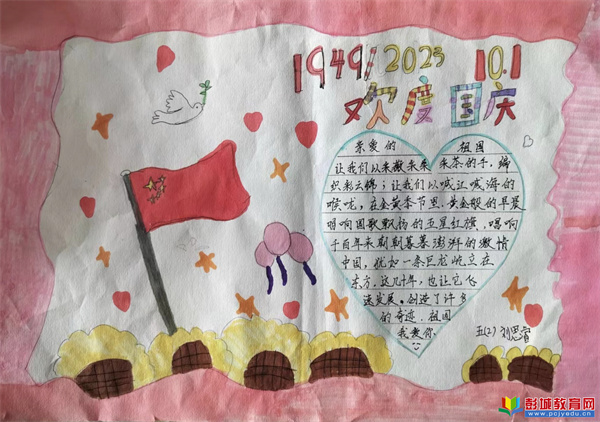 1949/2023 10.1
欢度国庆
亲爱的 祖国
让我们以来撒来柔 采茶的手,编
织彩云锦;让我们以喊江喊海的
喉咙,在金黄季节里、黄金般的早晨
唱响国歌飘扬的五星红旗,唱响
千百年来朝朝暮暮澎湃的激情
中国,犹如一条巨龙屹立在
东方,这几十年,也让它飞
速发展。创造了许多
的奇迹,祖国
我爱你
五(2)
彭城教育网
www.pcjyedu.cn